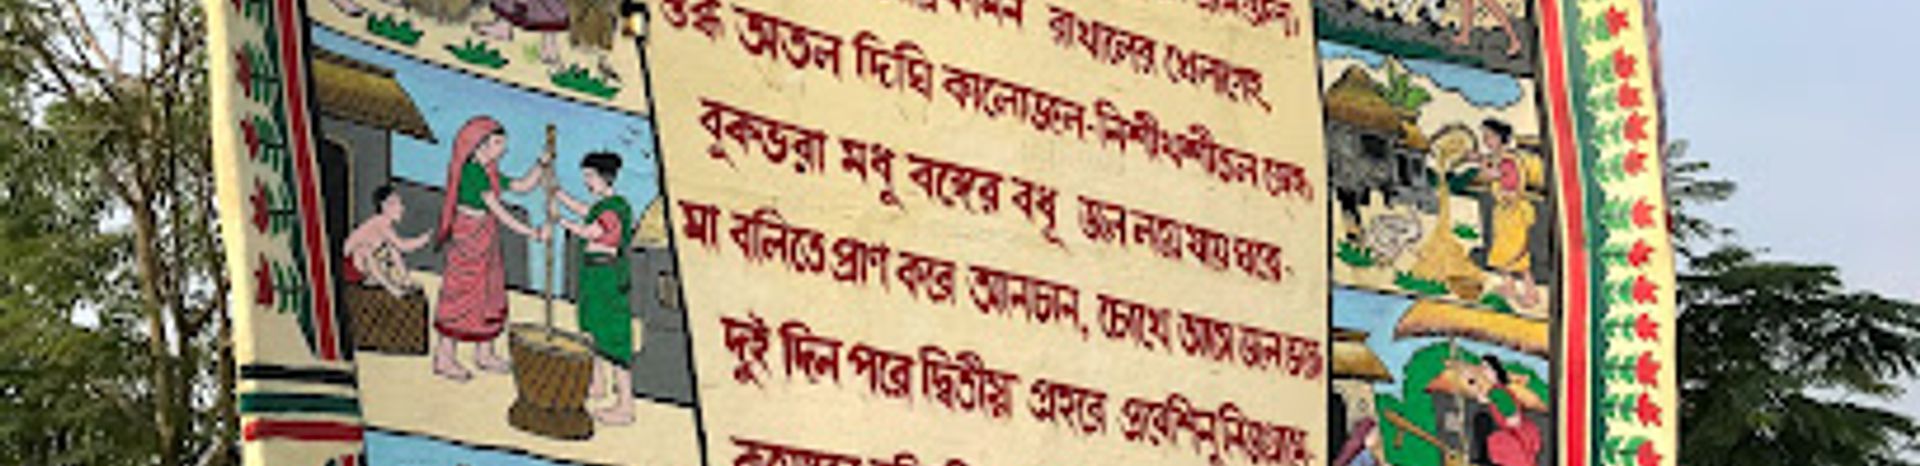 রাখালের খেলাগেহ,
স্তব্ধ অতল দিঘি কালোজল-নিশীথশীতল স্নেহ।
বুকভরা মধু বঙ্গের বধূ জল লয়ে যায় ঘরে-
মা বলিতে প্রাণ করে আনচান, চোখে আসে জল ভরে।
দুই দিন পরে দ্বিতীয় প্রহরে প্রবেশিনু নিজগ্রামে-